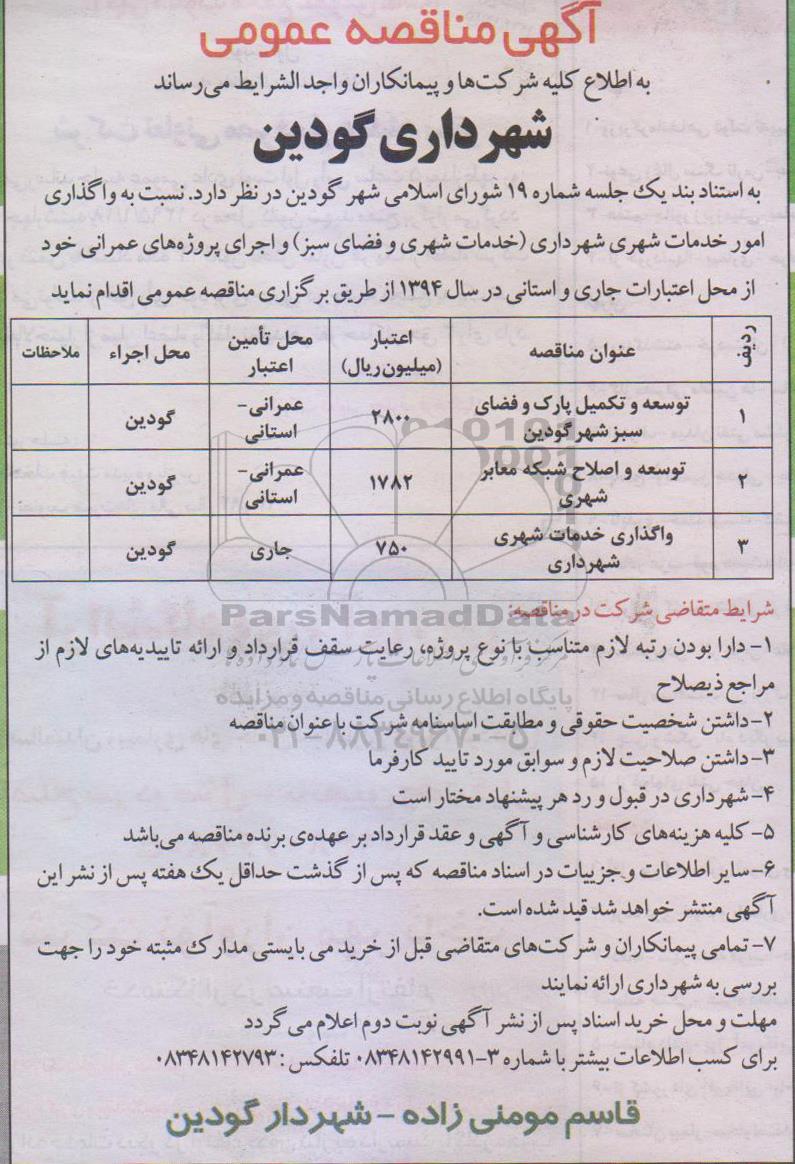 آگهی مناقصه عمومی
به اطلاع کلیه شرکت‌ها و پیمانکاران واجد الشرایط می‌رساند
شهرداری گودین
به استناد بند یک جلسه شماره ۱۹ شورای اسلامی شهر گودین در نظر دارد. نسبت به واگذاری
امور خدمات شهری شهرداری (خدمات شهری و فضای سبز) و اجرای پروژه‌های عمرانی خود
از محل اعتبارات جاری و استانی در سال ۱۳۹۴ از طریق برگزاری مناقصه عمومی اقدام نماید
ردیف عنوان مناقصه اعتبار (میلیون ریال) محل تأمین اعتبار محل اجراء ملاحظات
۱ توسعه و تکمیل پارک و فضای سبز شهر گودین ۲۸۰۰ عمرانی- استانی گودین
۲ توسعه و اصلاح شبکه معابر شهری ۱۷۸۲ عمرانی- استانی گودین
۳ واگذاری خدمات شهری شهرداری ۷۵۰ جاری گودین
ParsNamadData
شرایط متقاضی شرکت در مناقصه:
۱- دارا بودن رتبه لازم متناسب با نوع پروژه، رعایت سقف قرارداد و ارائه تاییدیه‌های لازم از
مراجع ذیصلاح
پایگاه اطلاع رسانی مناقصه و مزایده
۲- داشتن شخصیت حقوقی و مطابقت اساسنامه شرکت با عنوان مناقصه
۳- داشتن صلاحیت لازم و سوابق مورد تایید کارفرما
۴- شهرداری در قبول و رد هر پیشنهاد مختار است
۵- کلیه هزینه‌های کارشناسی و آگهی و عقد قرارداد بر عهده‌ی برنده مناقصه می‌باشد
۶- سایر اطلاعات و جزییات در اسناد مناقصه که پس از گذشت حداقل یک هفته پس از نشر این
آگهی منتشر خواهد شد قید شده است.
۷- تمامی پیمانکاران و شرکت‌های متقاضی قبل از خرید می بایستی مدارک مثبته خود را جهت
بررسی به شهرداری ارائه نمایند
مهلت و محل خرید اسناد پس از نشر آگهی نوبت دوم اعلام می گردد
برای کسب اطلاعات بیشتر با شماره ۳-۰۸۳۴۸۱۴۲۹۹۱ تلفکس : ۰۸۳۴۸۱۴۲۷۹۳
قاسم مومنی زاده - شهردار گودین